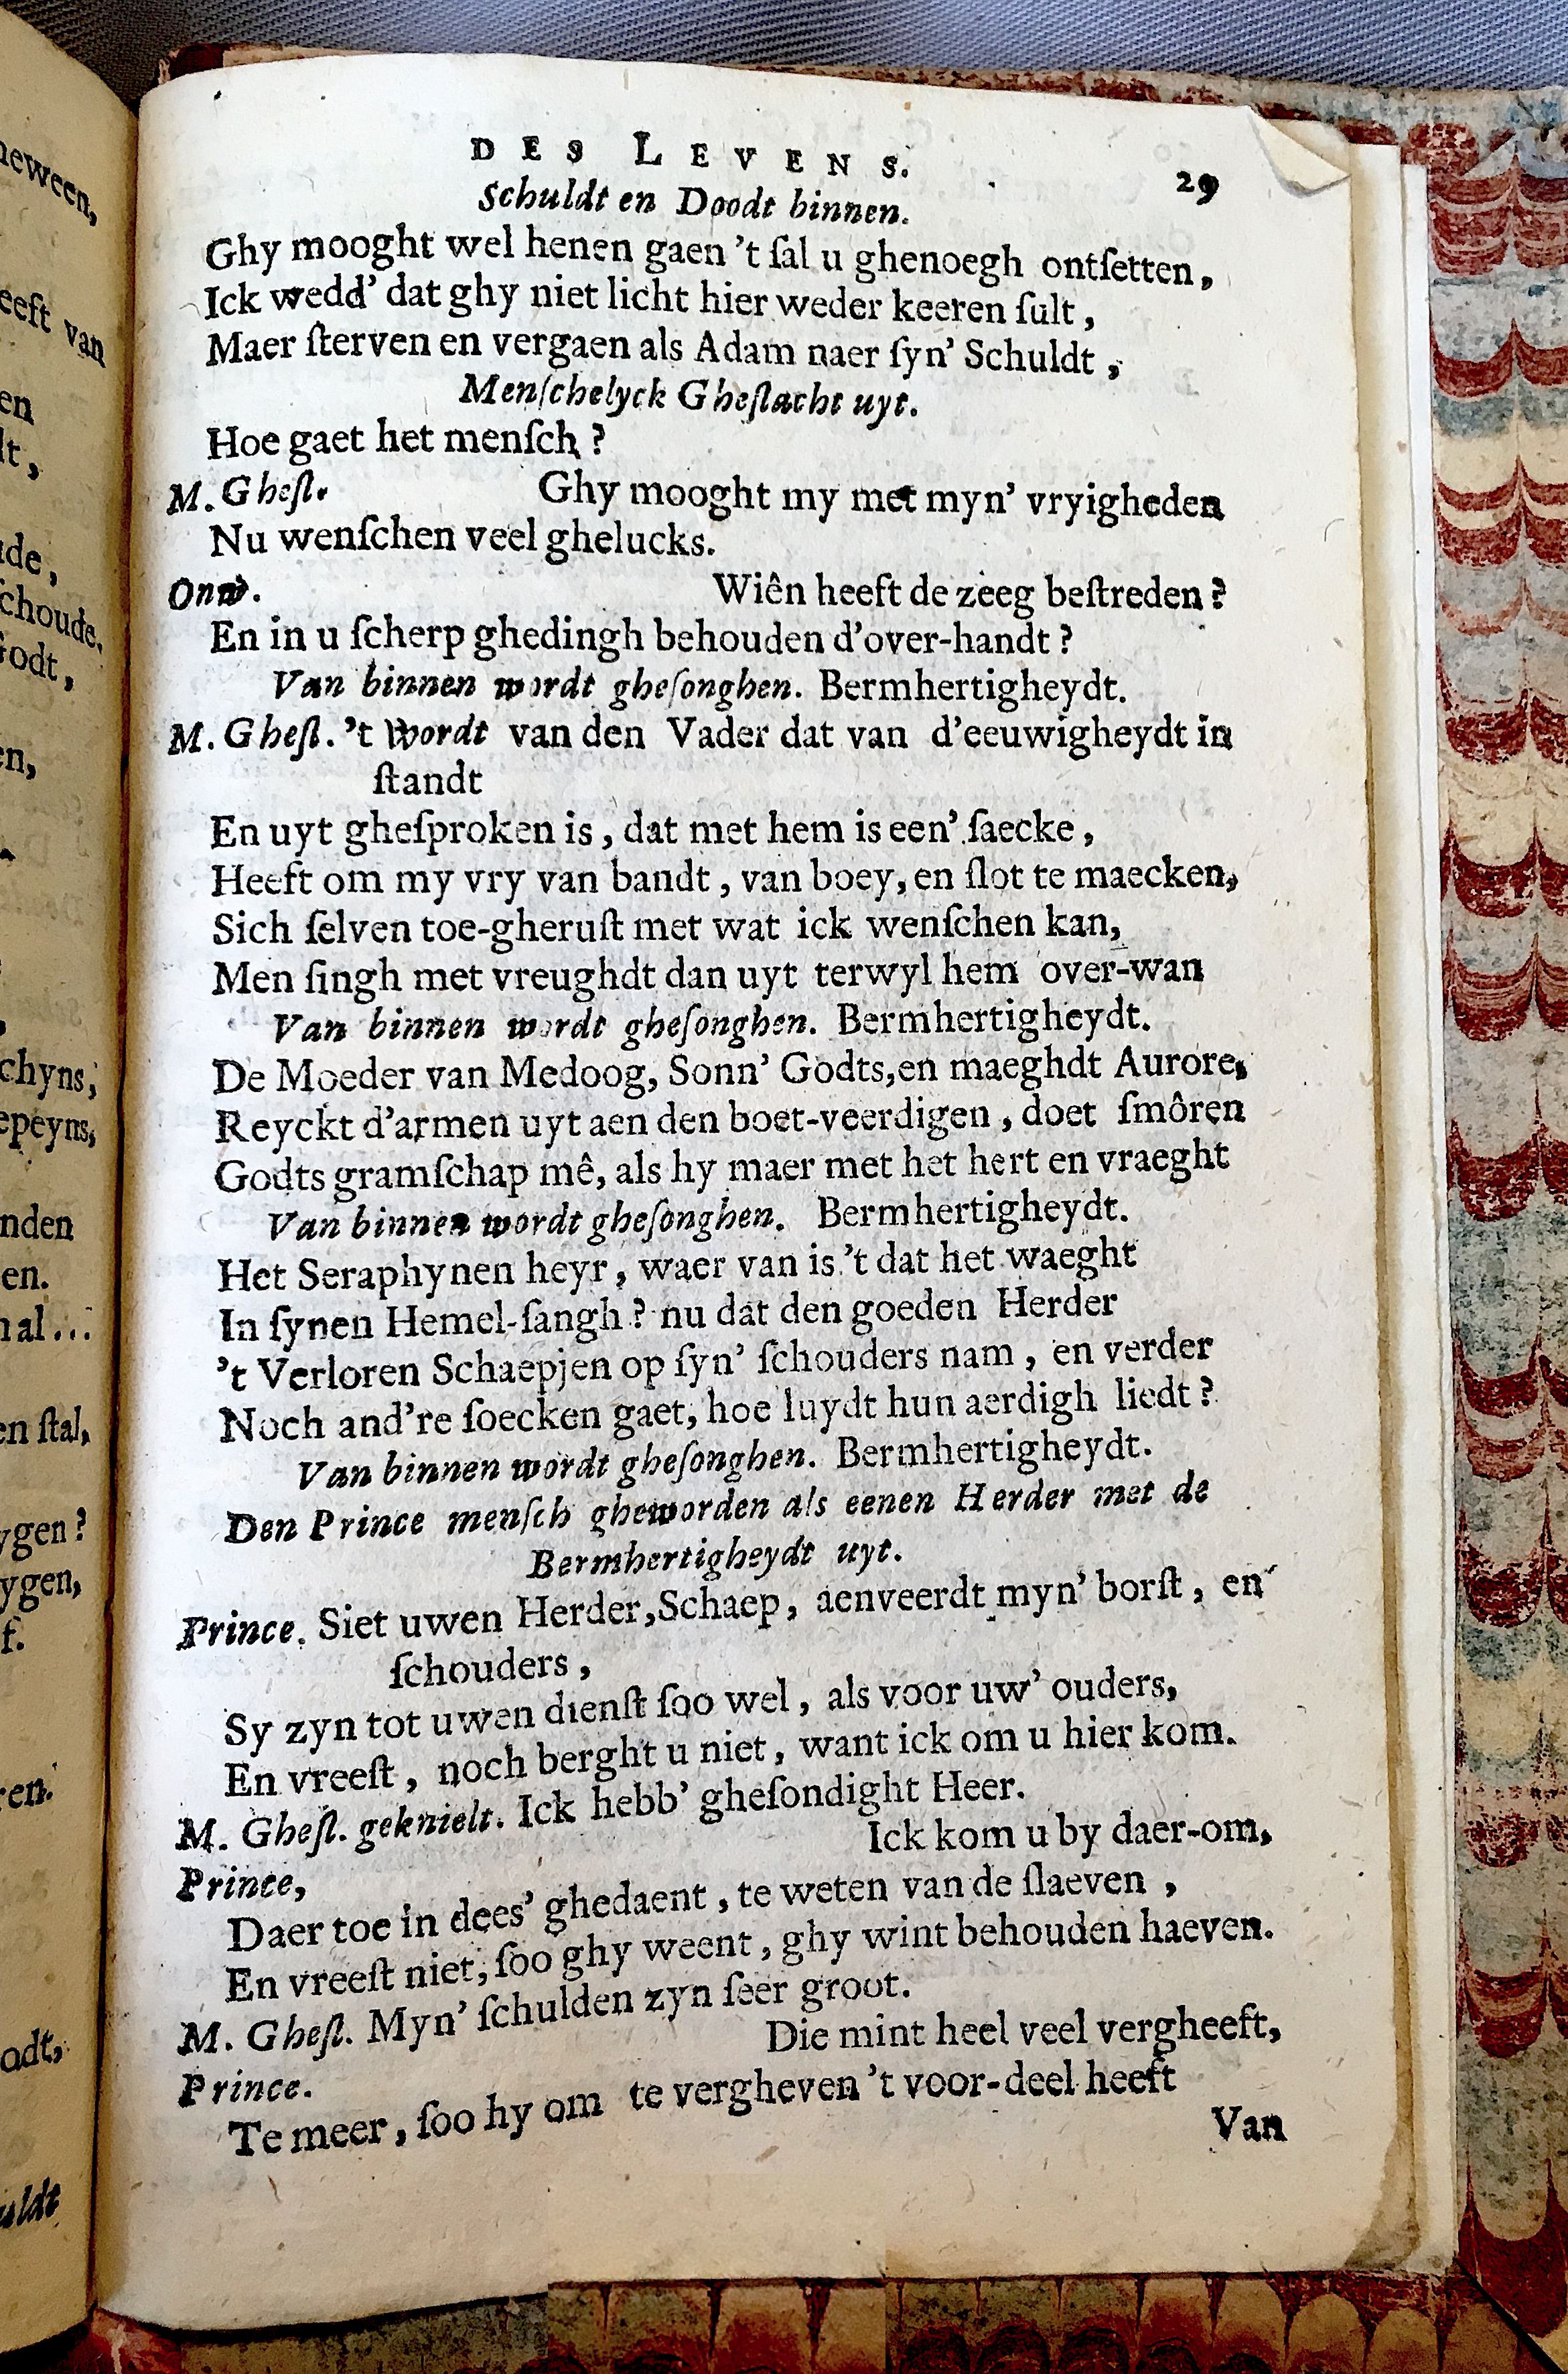 neween,
eeft van
en
lt,
de,
choude.
Godt,
en,
chyns,
epeyns,
nden
en.
nal...
en ſtal,
ygen?
ygen,
f.
ren.
odt,
uldt
DES LEVENS. 29
Schuldt en Doodt binnen.
Ghy mooght wel henen gaen 't ſal u ghenoegh ontſetten,
Ick wedd' dat ghy niet licht hier weder keeren ſult,
Maer ſterven en vergaen als Adam naer ſyn' Schuldt,
Menſchelyck Gheſlacht uyt.
Hoe gaet het menſch?
M. Gheſl. Ghy mooght my met myn' vryigheden
Nu wenſchen veel ghelucks.
Onw. Wiên heeft de zeeg beſtreden?
En in u ſcherp ghedingh behouden d'over-handt?
Van binnen wordt gheſonghen. Bermhertigheydt.
M. Gheſl. 't Wordt van den Vader dat van d'eeuwigheydt in
ſtandt
En uyt gheſproken is, dat met hem is een' ſaecke,
Heeft om my vry van bandt, van boey, en ſlot te maecken,
Sich ſelven toe-gheruſt met wat ick wenſchen kan,
Men ſingh met vreughdt dan uyt terwyl hem over-wan
Van binnen wordt gheſonghen. Bermhertigheydt.
De Moeder van Medoog, Sonn' Godts, en maeghdt Aurore,
Reyckt d'armen uyt aen den boet-veerdigen, doet ſmôren
Godts gramſchap mê, als hy maer met het hert en vraeght
Van binnen wordt gheſonghen. Bermhertigheydt.
Het Seraphynen heyr, waer van is 't dat het waeght
In ſynen Hemel-ſangh? nu dat den goeden Herder
't Verloren Schaepjen op ſyn' ſchouders nam, en verder
Noch and're ſoecken gaet, hoe luydt hun aerdigh liedt?
Van binnen wordt gheſonghen. Bermhertigheydt.
Den Prince menſch gheworden als eenen Herder met de
Bermhertigheydt uyt.
Prince. Siet uwen Herder, Schaep, aenveerdt myn' borſt, en
ſchouders,
Sy zyn tot uwen dienſt ſoo wel, als voor uw' ouders,
En vreeſt, noch berght u niet, want ick om u hier kom.
M. Gheſl. geknielt. Ick hebb' gheſondight Heer.
Prince, Ick kom u by daer-om,
Daer toe in dees' ghedaent, te weten van de ſlaeven,
En vreeſt niet, ſoo ghy weent, ghy wint behouden haeven.
M. Gheſl. Myn' ſchulden zyn ſeer groot.
Prince. Die mint heel veel vergheeft,
Te meer, ſoo hy om te vergheven 't voor-deel heeft
Van